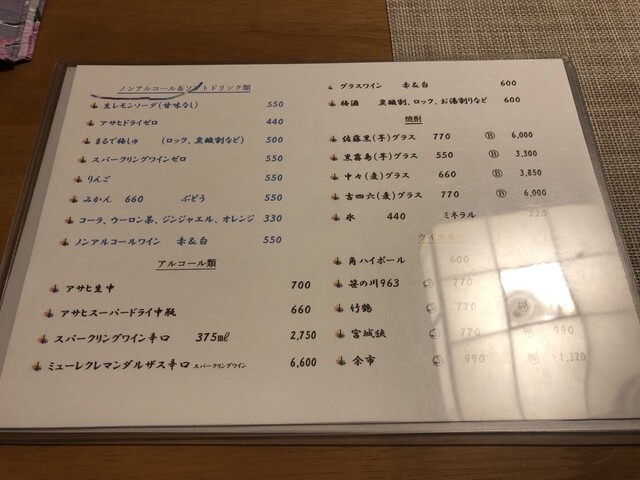 ノンアルコール&ソフトドリンク類
生レモンソーダ(甘味なし) 550
アサヒドライゼロ 440
まるで梅しゅ (ロック、炭酸割など) 500
スパークリングワインゼロ 550
りんご 550
みかん 660 ぶどう 550
コーラ、ウーロン茶、ジンジャエル、オレンジ 330
ノンアルコールワイン 赤&白 550
アルコール類
アサヒ生中 700
アサヒスーパードライ中瓶 660
スパークリングワイン辛口 375ml 2,750
ミューレクレマンダルザス辛口 スパークリングワイン 6,600
グラスワイン 赤&白 600
梅酒 炭酸割、ロック、お湯割りなど 600
焼酎
佐藤黒(芋)グラス 770 Ⓑ 6,000
黒霧島(芋)グラス 550 Ⓑ 3,300
中々(麦)グラス 660 Ⓑ 3,850
吉四六(麦)グラス 770 Ⓑ 6,000
氷 440 ミネラル 220
ウイスキー
角ハイボール 600
笹の川963 Ⓢ 770
竹鶴 Ⓢ 770
宮城狭 Ⓢ 770 990
余市 Ⓢ 990 1,320